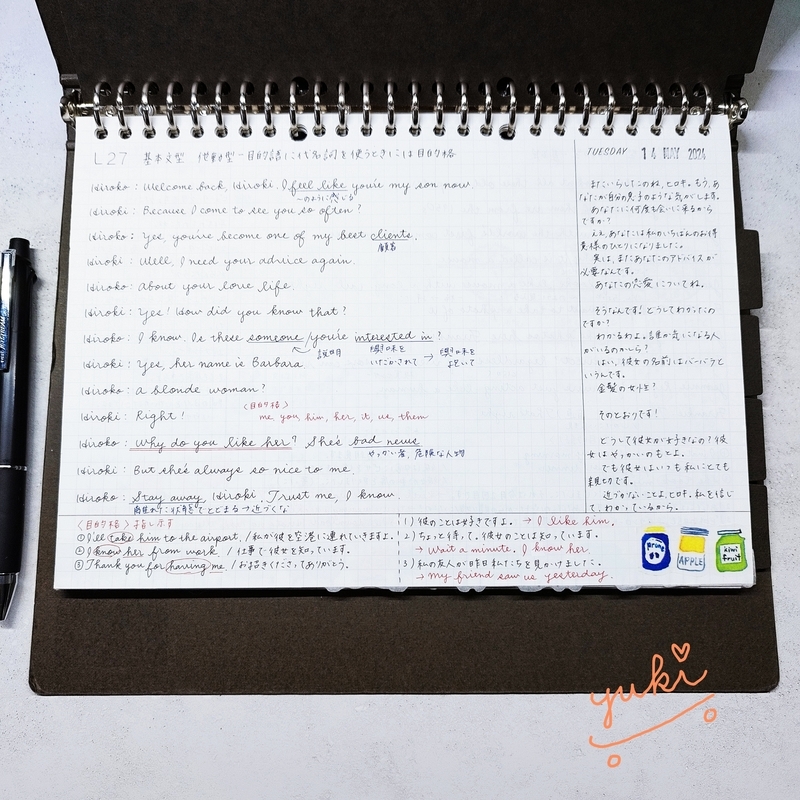 L27 基本文型 他動型-目的語に代名詞を使うときには目的格
TUESDAY 14 MAY 2024
Hiroko : Welcome back, Hiroki. I feel like you're my son now.
〜のように感じる
Hiroki : Because I come to see you so often?
Hiroko : Yes, you've become one of my best clients.
顧客
Hiroki : Well, I need your advice again.
Hiroko : About your love life.
Hiroki : Yes! How did you know that?
Hiroko : I know. Is there someone / you're interested in?
説明
興味を
いだかされて → 興味を
よせて
Hiroki : Yes, her name is Barbara
Hiroko : A blonde woman?
Hiroki : Right!
〈目的格〉
me, you, him, her, it, us, them
Hiroko : Why do you like her? She's bad news
やっかい者, 危険な人物
Hiroki : But she's always so nice to me.
Hiroko : Stay away, Hiroki. Trust me, I know.
またいらしたのね、ヒロキ。もう、あ
なたが自分の息子のような気がします。
あなたに何度も会いに来るから
ですか?
ええ、あなたは私のいちばんのお得
意様のひとりになりました。
実は、またあなたのアドバイスが
必要なんです。
あなたの恋愛についてね。
そうなんです!どうしてわかったの
ですか?
わかるわよ。誰か気になる人
がいるのかしら?
はい、彼女の名前はバーバラと
いうんです。
金髪の女性?
そのとおりです!
どうして彼女が好きなの?彼
女はやっかいのもとよ。
でも彼女はいつも私にとても
親切です。
近づかないことよ、ヒロキ。私を信じ
て。わかっているから。
〈目的格〉指し示す
① I'll take him to the airport. / 私が彼を空港に連れていきますよ。
② I know her from work / 仕事で彼女を知っています。
③ Thank you for having me. / お招きくださってありがとう。
1) 彼のことは好きですよ。 → I like him.
2) ちょっと待って。彼女のことは知っています。
→ Wait a minute. I know her.
3) 私の友人が昨日私たちを見かけました。
→ My friend saw us yesterday.
Prune
APPLE
kiwi
fruit
yuki